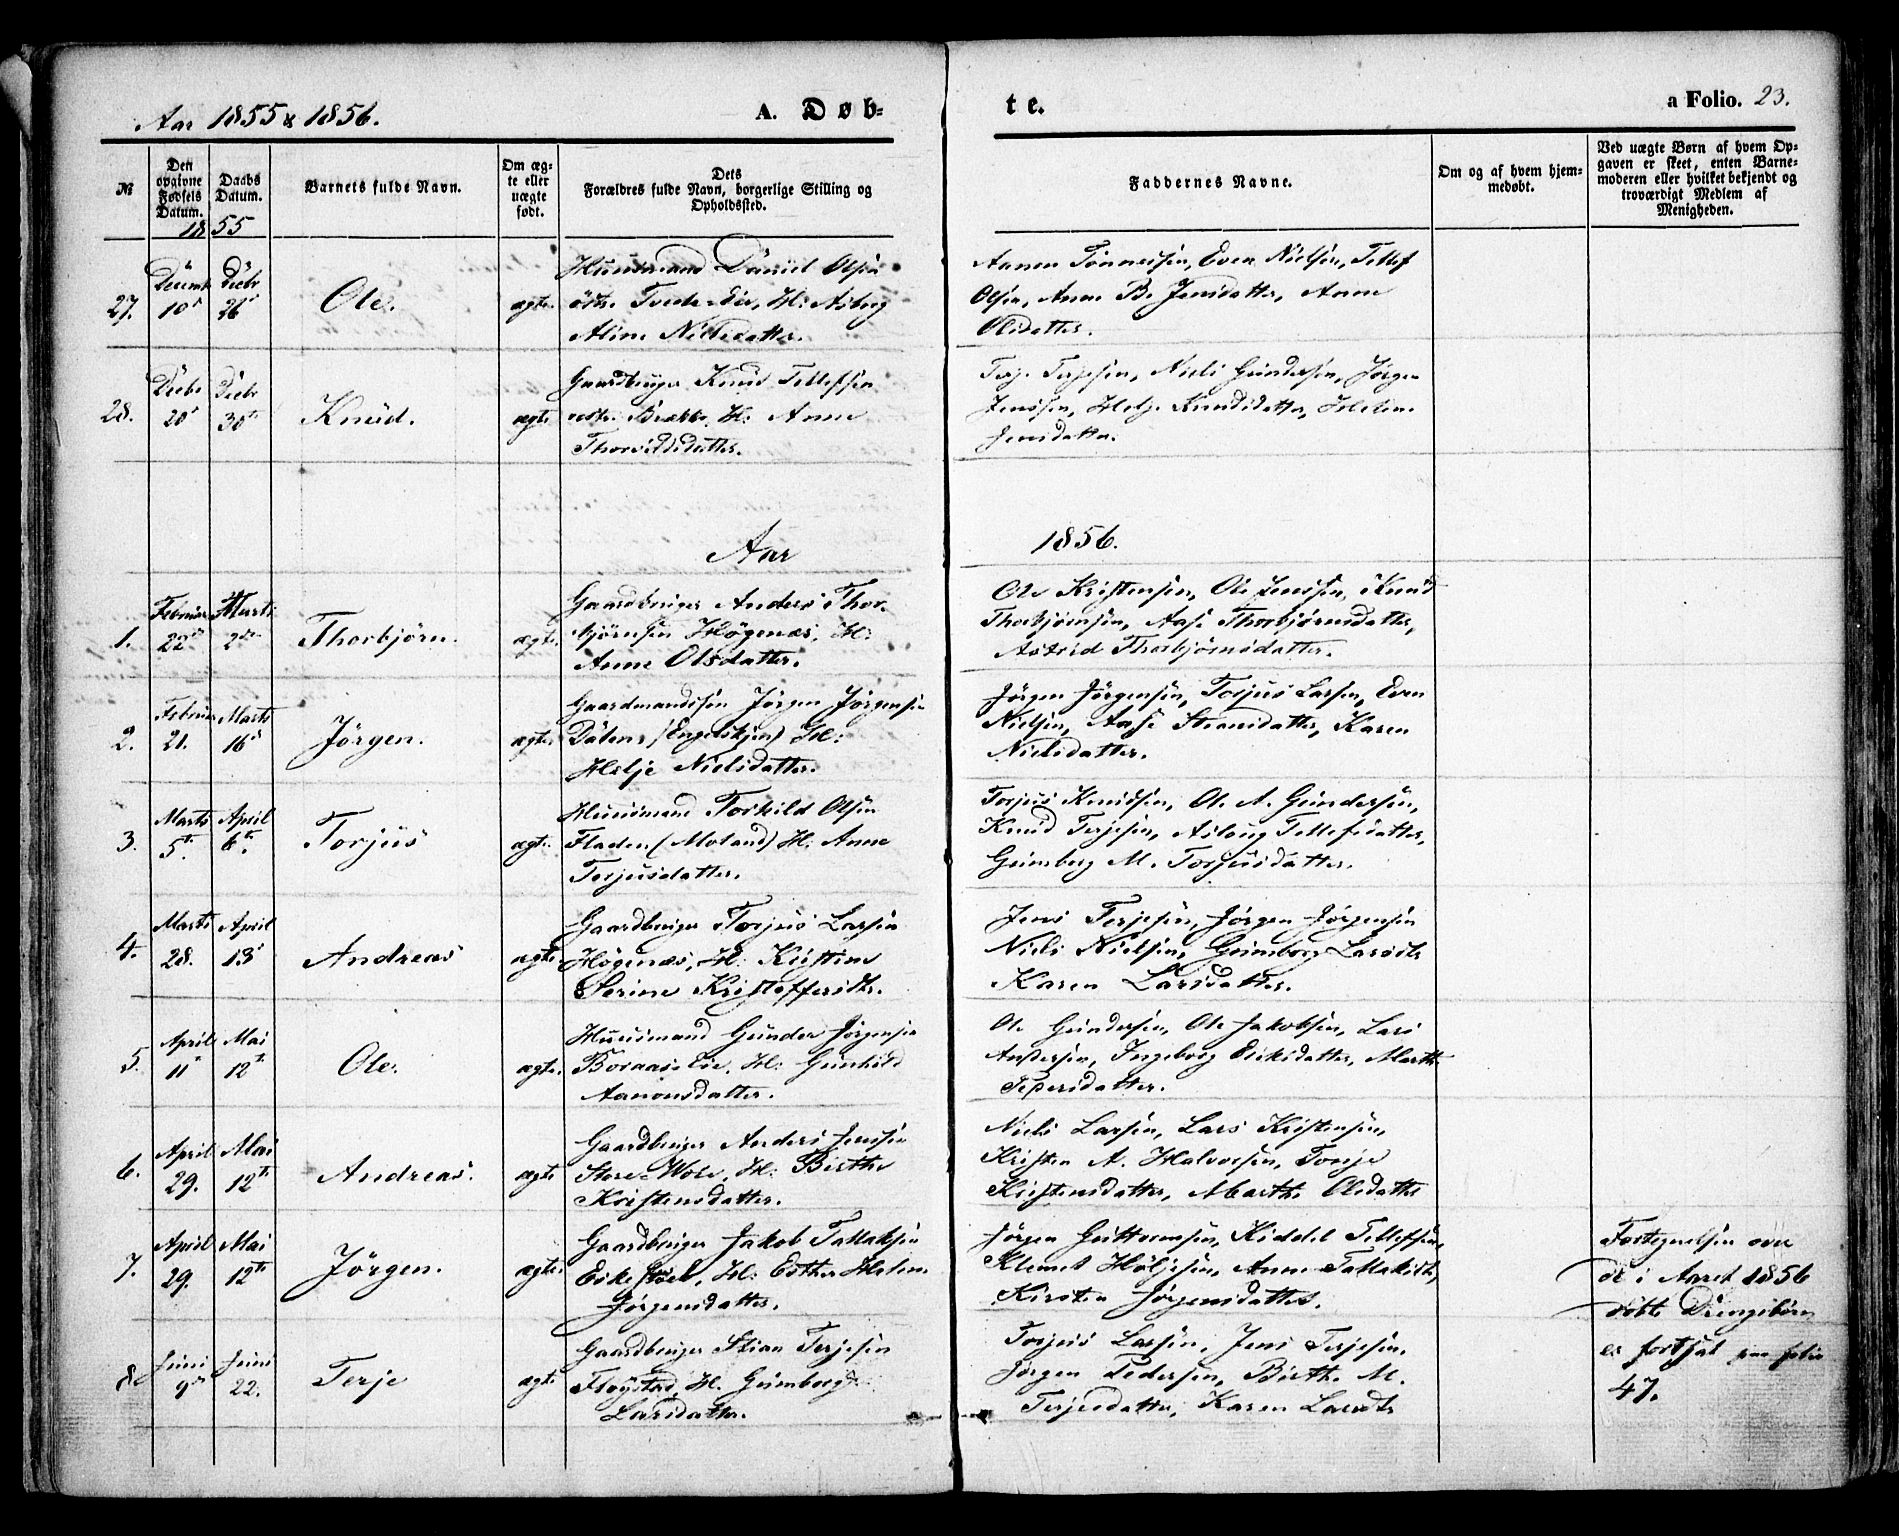 Aar 1855 & 1856. A. Døb-
te.
a Folio. 23.
№
Den opgivne Fødsels Datum.
Daabs Datum.
1855
Barnets fulde Navn.
Om ægte eller uægte født.
Dets Forældres fulde Navn, borgerlige Stilling og Opholdssted.
Faddernes Navne.
Om og af hvem hjemmedøbt.
Ved uægte Børn af hvem Opgaven er skeet, enten Barnemoderen eller hvilket bekjendt og troværdigt Medlem af Menigheden.
27. 10 26 Ole. ægte
Huusmand Daniel Olsen
Tvede-Eie, H: Asborg
Aline Nilsdatter.
Aanen Tønnesen, Even Nielsen, Tellef
Olsen, Anne B. Jensdatter, Anne
Olsdatter.
28. Decbr 20 Decbr 30 Knud. ægte
Gaardbruger Knud Tellefsen
Brække, H: Anne
Thorvildsdatter.
Terje Terjesen, Niels Gundersen, Jørgen
Jensen, Helje Knudsdatter,
Jensdatter.
Aar 1856.
1. Februar 22 Marts 2 Thorbjørn. ægte
Gaardbruger Anders Thor-
bjørnsen Høgenæs, H:
Anne Olsdatter.
Ole Kristensen, Ole Jensen, Knud
Thorbjørnsen, Aase Thorbjørnsdatter,
Astrid Thorbjørnsdatter.
2. Februar 21. Marts 16 Jørgen. ægte
Gaardmandssøn Jørgen Jørgensen
Dalene (Engelskjøn) H:
Helje Nielsdatter.
Jørgen Jørgensen, Torjus Larsen, Even
Nielsen, Aase Steansdatter, Karen
Nielsdatter.
3. Marts 5te April 6te Torjus ægte
Huusmand Torkild Olsen
Fladen (Moland) H: Anne
Torjusdatter.
Torjus Knudsen, Ole A. Gundersen,
Knud Terjesen, Aslaug Tellefsdatter,
Gunborg M. Torjusdatter.
4. Marts 28. April 13 Andreas ægte
Gaardbruger Torjus Larsen
Høgenæs, H: Kristine
Serine Kristoffersdtr.
Jens Terjesen, Jørgen Jørgensen
Niels Nielsen, Gunborg Larsdtr
Karen Larsdatter.
5. April 11 Mai 12te Ole. ægte
Huusmand Gunder Jørgensen
Boraas-Eie, H: Gunhild
Aanonsdatter.
Ole Gundersen, Ole Jakobsen, Lars
Andersen, Ingeborg Eriksdatter, Marthe
Jespersdatter.
6. April 29. Mai 12te Andreas. ægte
Gaardbruger Anders Jensen
Store-Wole, H: Birthe
Kristensdatter.
Niels Larsen, Lars Kristensen,
Kristen A. Halvorsen, Torije
Kristensdatter, Marthe Olsdatter
7. April 29. Mai 12te Jørgen. ægte
Gaardbruger Jakob Tallaksen
H: Esther Helene
Jørgensdatter.
Jørgen Guttormsen, Kiddel Tellefsen,
Klemet Høljesen, Anne Tallaksdtr,
Kirsten Jørgensdatter.
Fortegnelsen over
de i Aaret 1856
døbte Drengebørn
er fortsat paa folio
47.
8. Juni 9 Juni 22. Terje ægte
Gaardbruger Stian Terjesen
Fløystad, H. Gunborg
Larsdatter.
Torjus Larsen, Jens Terjesen,
Jørgen Pedersen, Birthe M.
Terjesdatter, Karen Larsdtr